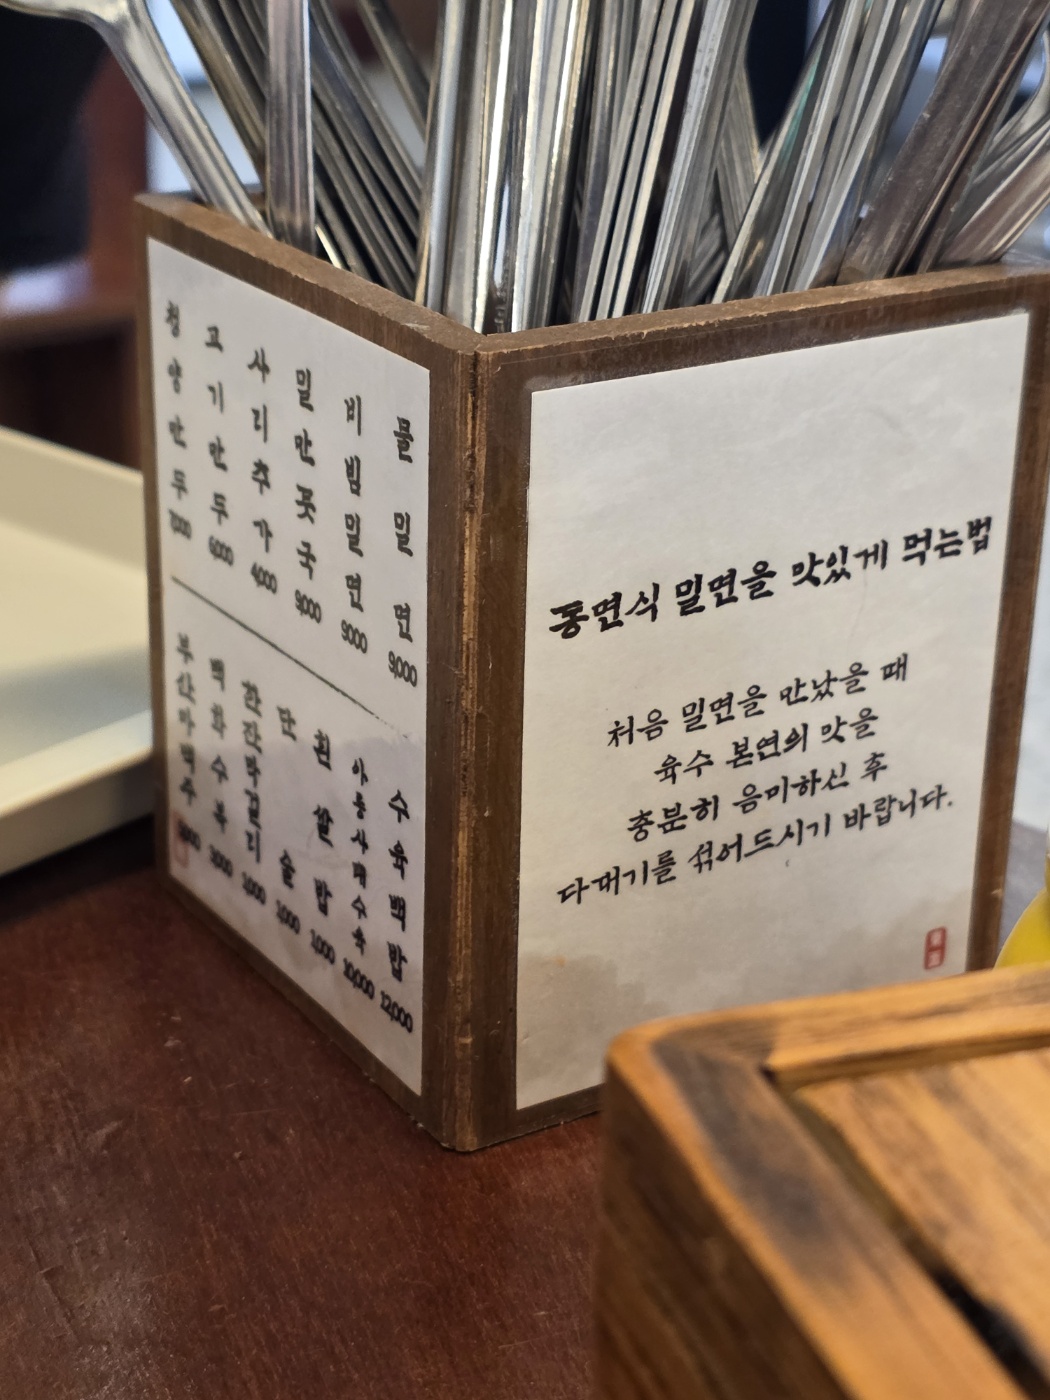 물밀면 9,000
비빔밀면 9,000
밀만둣국 9,000
사리추가 4,000
고기만두 6,000
청양만두 7,000
수육백밥 12,000
아롱사태수육 10,000
흰쌀밥 1,000
단술 1,000
한잔막걸리 1,000
백화수복 3,000
동면식 밀면을 맛있게 먹는법
처음 밀면을 만났을 때
육수 본연의 맛을
충분히 음미하신 후
다대기를 섞어드시기 바랍니다.